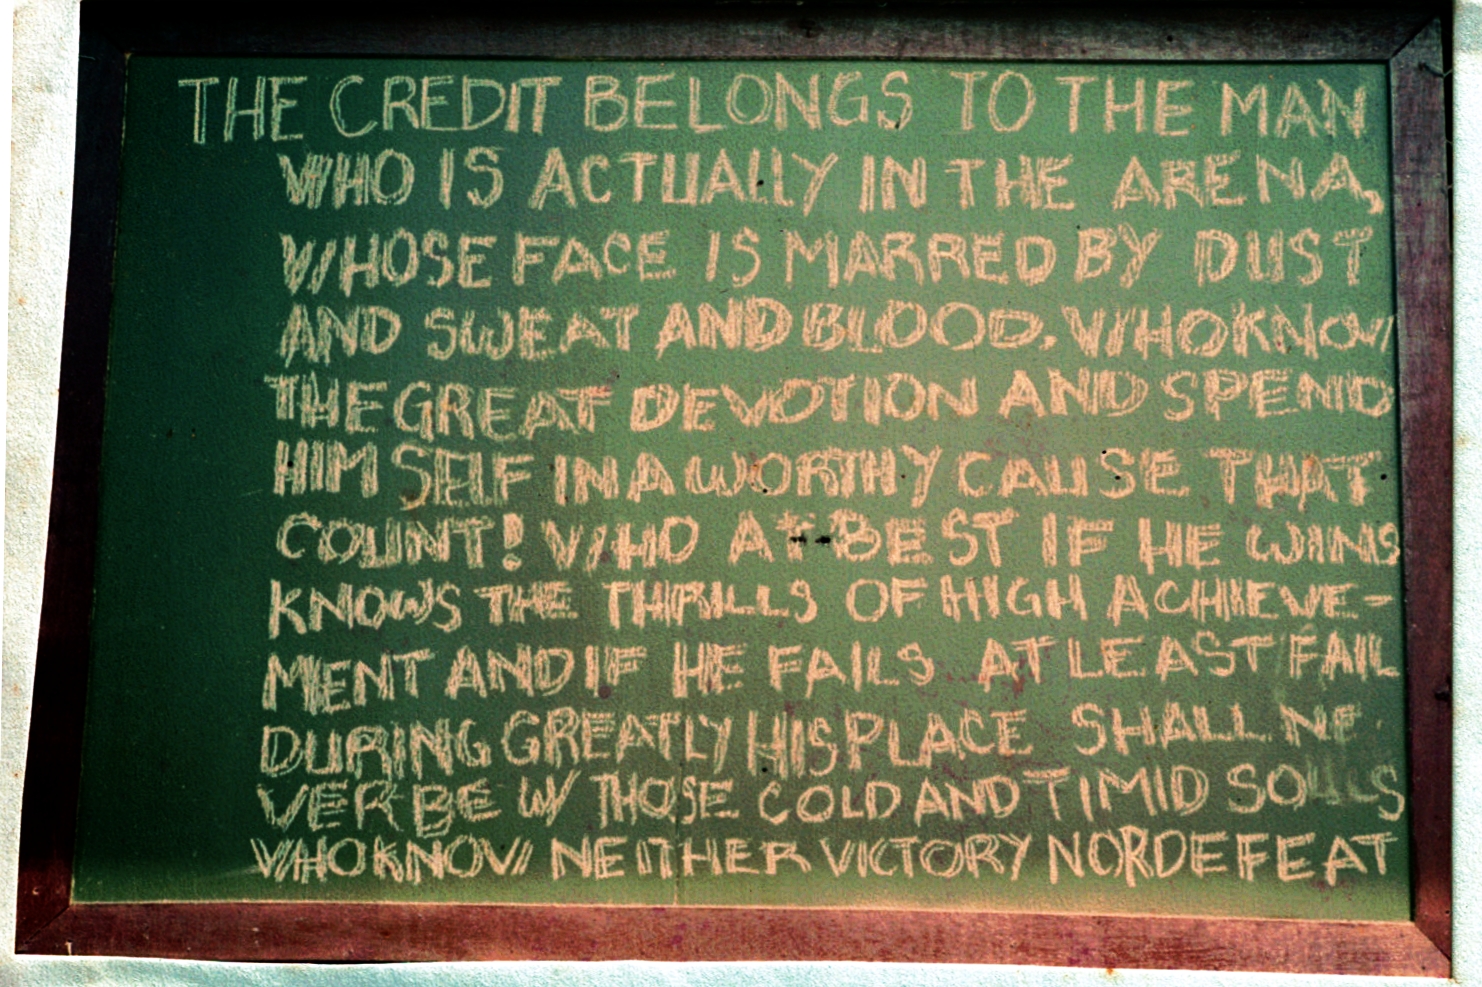 THE CREDIT BELONGS TO THE MAN
WHO IS ACTUALLY IN THE ARENA,
WHOSE FACE IS MARRED BY DUST
AND SWEAT AND BLOOD, WHO KNOW
THE GREAT DEVOTION AND SPEND
HIMSELF IN A WORTHY CAUSE THAT
COUNT! WHO AT BEST IF HE WINS
KNOWS THE THRILLS OF HIGH ACHIEVE-
MENT AND IF HE FAILS AT LEAST FAIL
DURING GREATLY HIS PLACE SHALL NE-
VER BE W/ THOSE COLD AND TIMID SOULS
WHO KNOW NEITHER VICTORY NOR DEFEAT